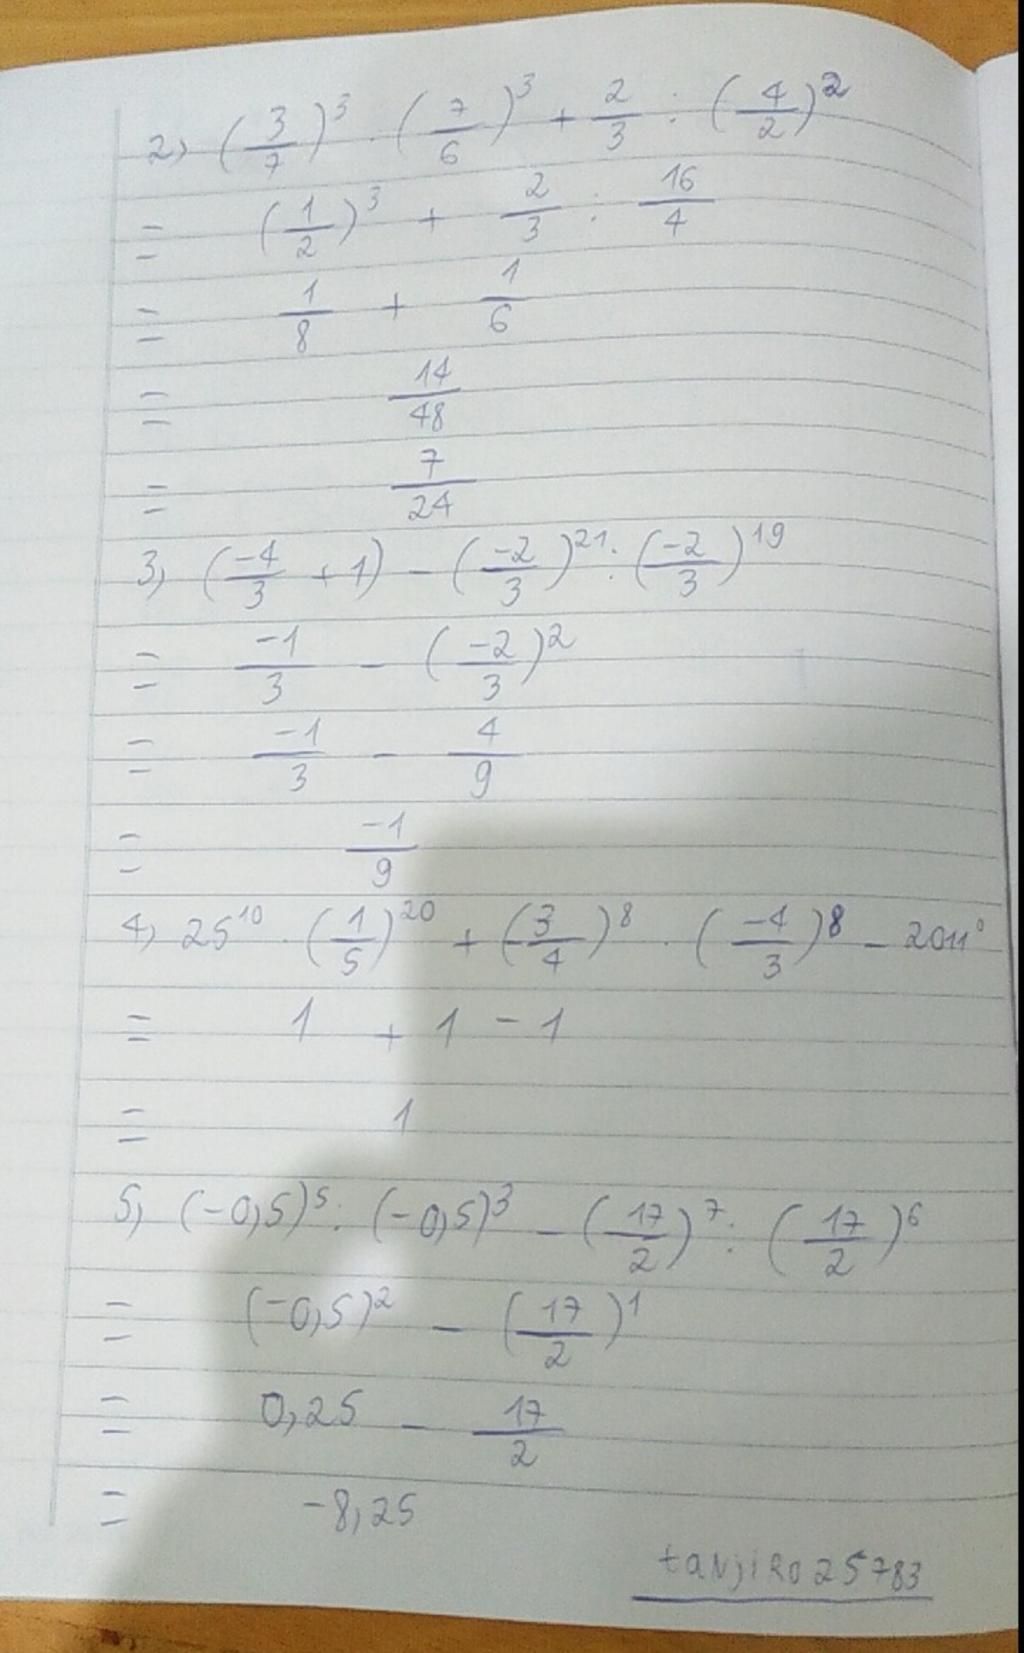 2) (3/7)³ . (7/6)³ + 2/3 : (4/2)²
= (1/2)³ + 2/3 : 16/4
= 1/8 + 1/6
= 14/48
= 7/24
3) (-4/3 + 1) - (-2/3)²¹ : (-2/3)¹⁹
= -1/3 - (-2/3)²
= -1/3 - 4/9
= -1/9
4) 25¹⁰ . (1/5)²⁰ + (-3/4)⁸ . (-4/3)⁸ - 2011⁰
= 1 + 1 - 1
= 1
5) (-0,5)⁵ : (-0,5)³ - (17/2)⁷ : (17/2)⁶
= (-0,5)² - (17/2)¹
= 0,25 - 17/2
= -8,25
tanjiro25783